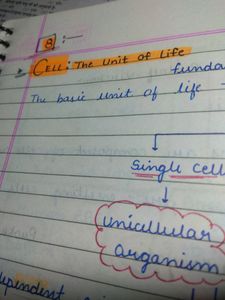 8 :-
CELL : The Unit of Life
funda
The basic unit of life -
Single cell
Unicellular
organism
ependent